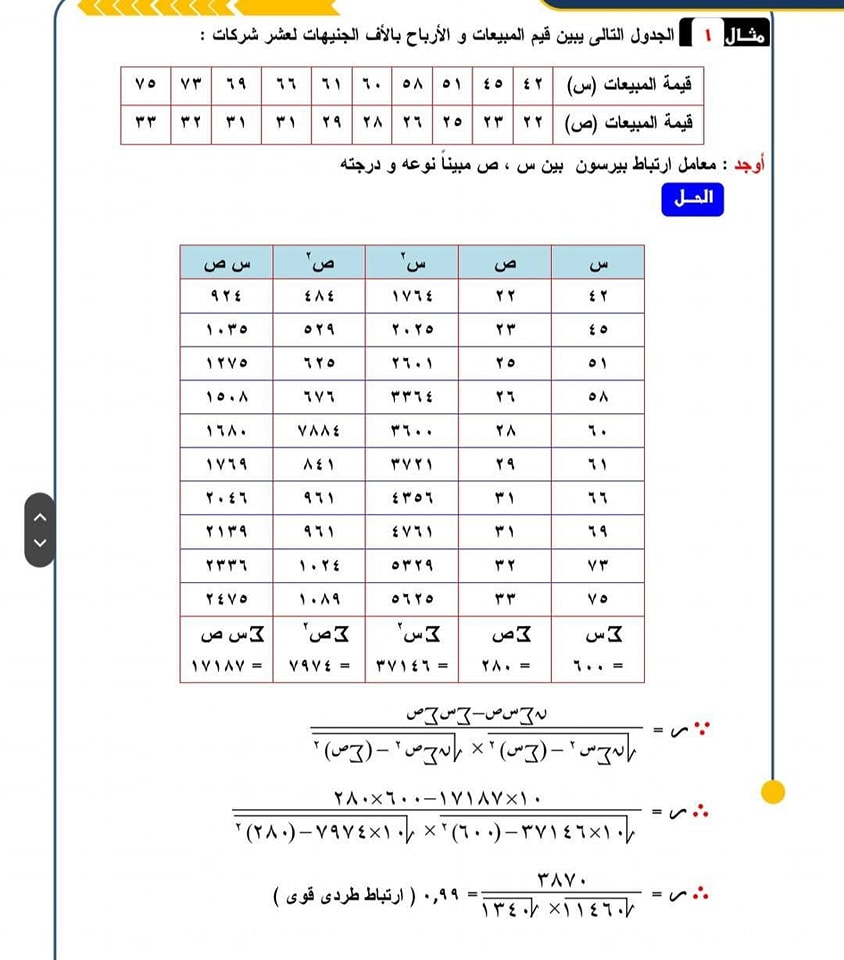 مثال ١ الجدول التالى يبين قيم المبيعات و الأرباح بالأف الجنيهات لعشر شركات :
قيمة المبيعات (س) ٤٢ ٤٥ ٥١ ٥٨ ٦٠ ٦١ ٦٦ ٦٩ ٧٣ ٧٥
قيمة المبيعات (ص) ٢٢ ٢٣ ٢٥ ٢٦ ٢٨ ٢٩ ٣١ ٣١ ٣٢ ٣٣
أوجد : معامل ارتباط بيرسون بين س ، ص مبيناً نوعه و درجته
الحل
س ص س٢ ص٢ س ص
٤٢ ٢٢ ١٧٦٤ ٤٨٤ ٩٢٤
٤٥ ٢٣ ٢٠٢٥ ٥٢٩ ١٠٣٥
٥١ ٢٥ ٢٦٠١ ٦٢٥ ١٢٧٥
٥٨ ٢٦ ٣٣٦٤ ٦٧٦ ١٥٠٨
٦٠ ٢٨ ٣٦٠٠ ٧٨٨٤ ١٦٨٠
٦١ ٢٩ ٣٧٢١ ٨٤١ ١٧٦٩
٦٦ ٣١ ٤٣٥٦ ٩٦١ ٢٠٤٦
٦٩ ٣١ ٤٧٦١ ٩٦١ ٢١٣٩
٧٣ ٣٢ ٥٣٢٩ ١٠٢٤ ٢٣٣٦
٧٥ ٣٣ ٥٦٢٥ ١٠٨٩ ٢٤٧٥
∑س ∑ص ∑س٢ ∑ص٢ ∑س ص
= ٦٠٠ = ٢٨٠ = ٣٧١٤٦ = ٧٩٧٤ = ١٧١٨٧
ن∑س‌ص−∑س∑ص
∵ ر =
√ن∑س٢ −(∑س)٢ × √ن∑ص٢ −(∑ص)٢
١٠×١٧١٨٧−٦٠٠×٢٨٠
∴ ر =
√١٠×٣٧١٤٦−(٦٠٠)٢ × √١٠×٧٩٧٤−(٢٨٠)٢
٣٨٧٠
∴ ر = = ٠,٩٩ ( ارتباط طردى قوى )
√١١٤٦٠ × √١٣٤٠